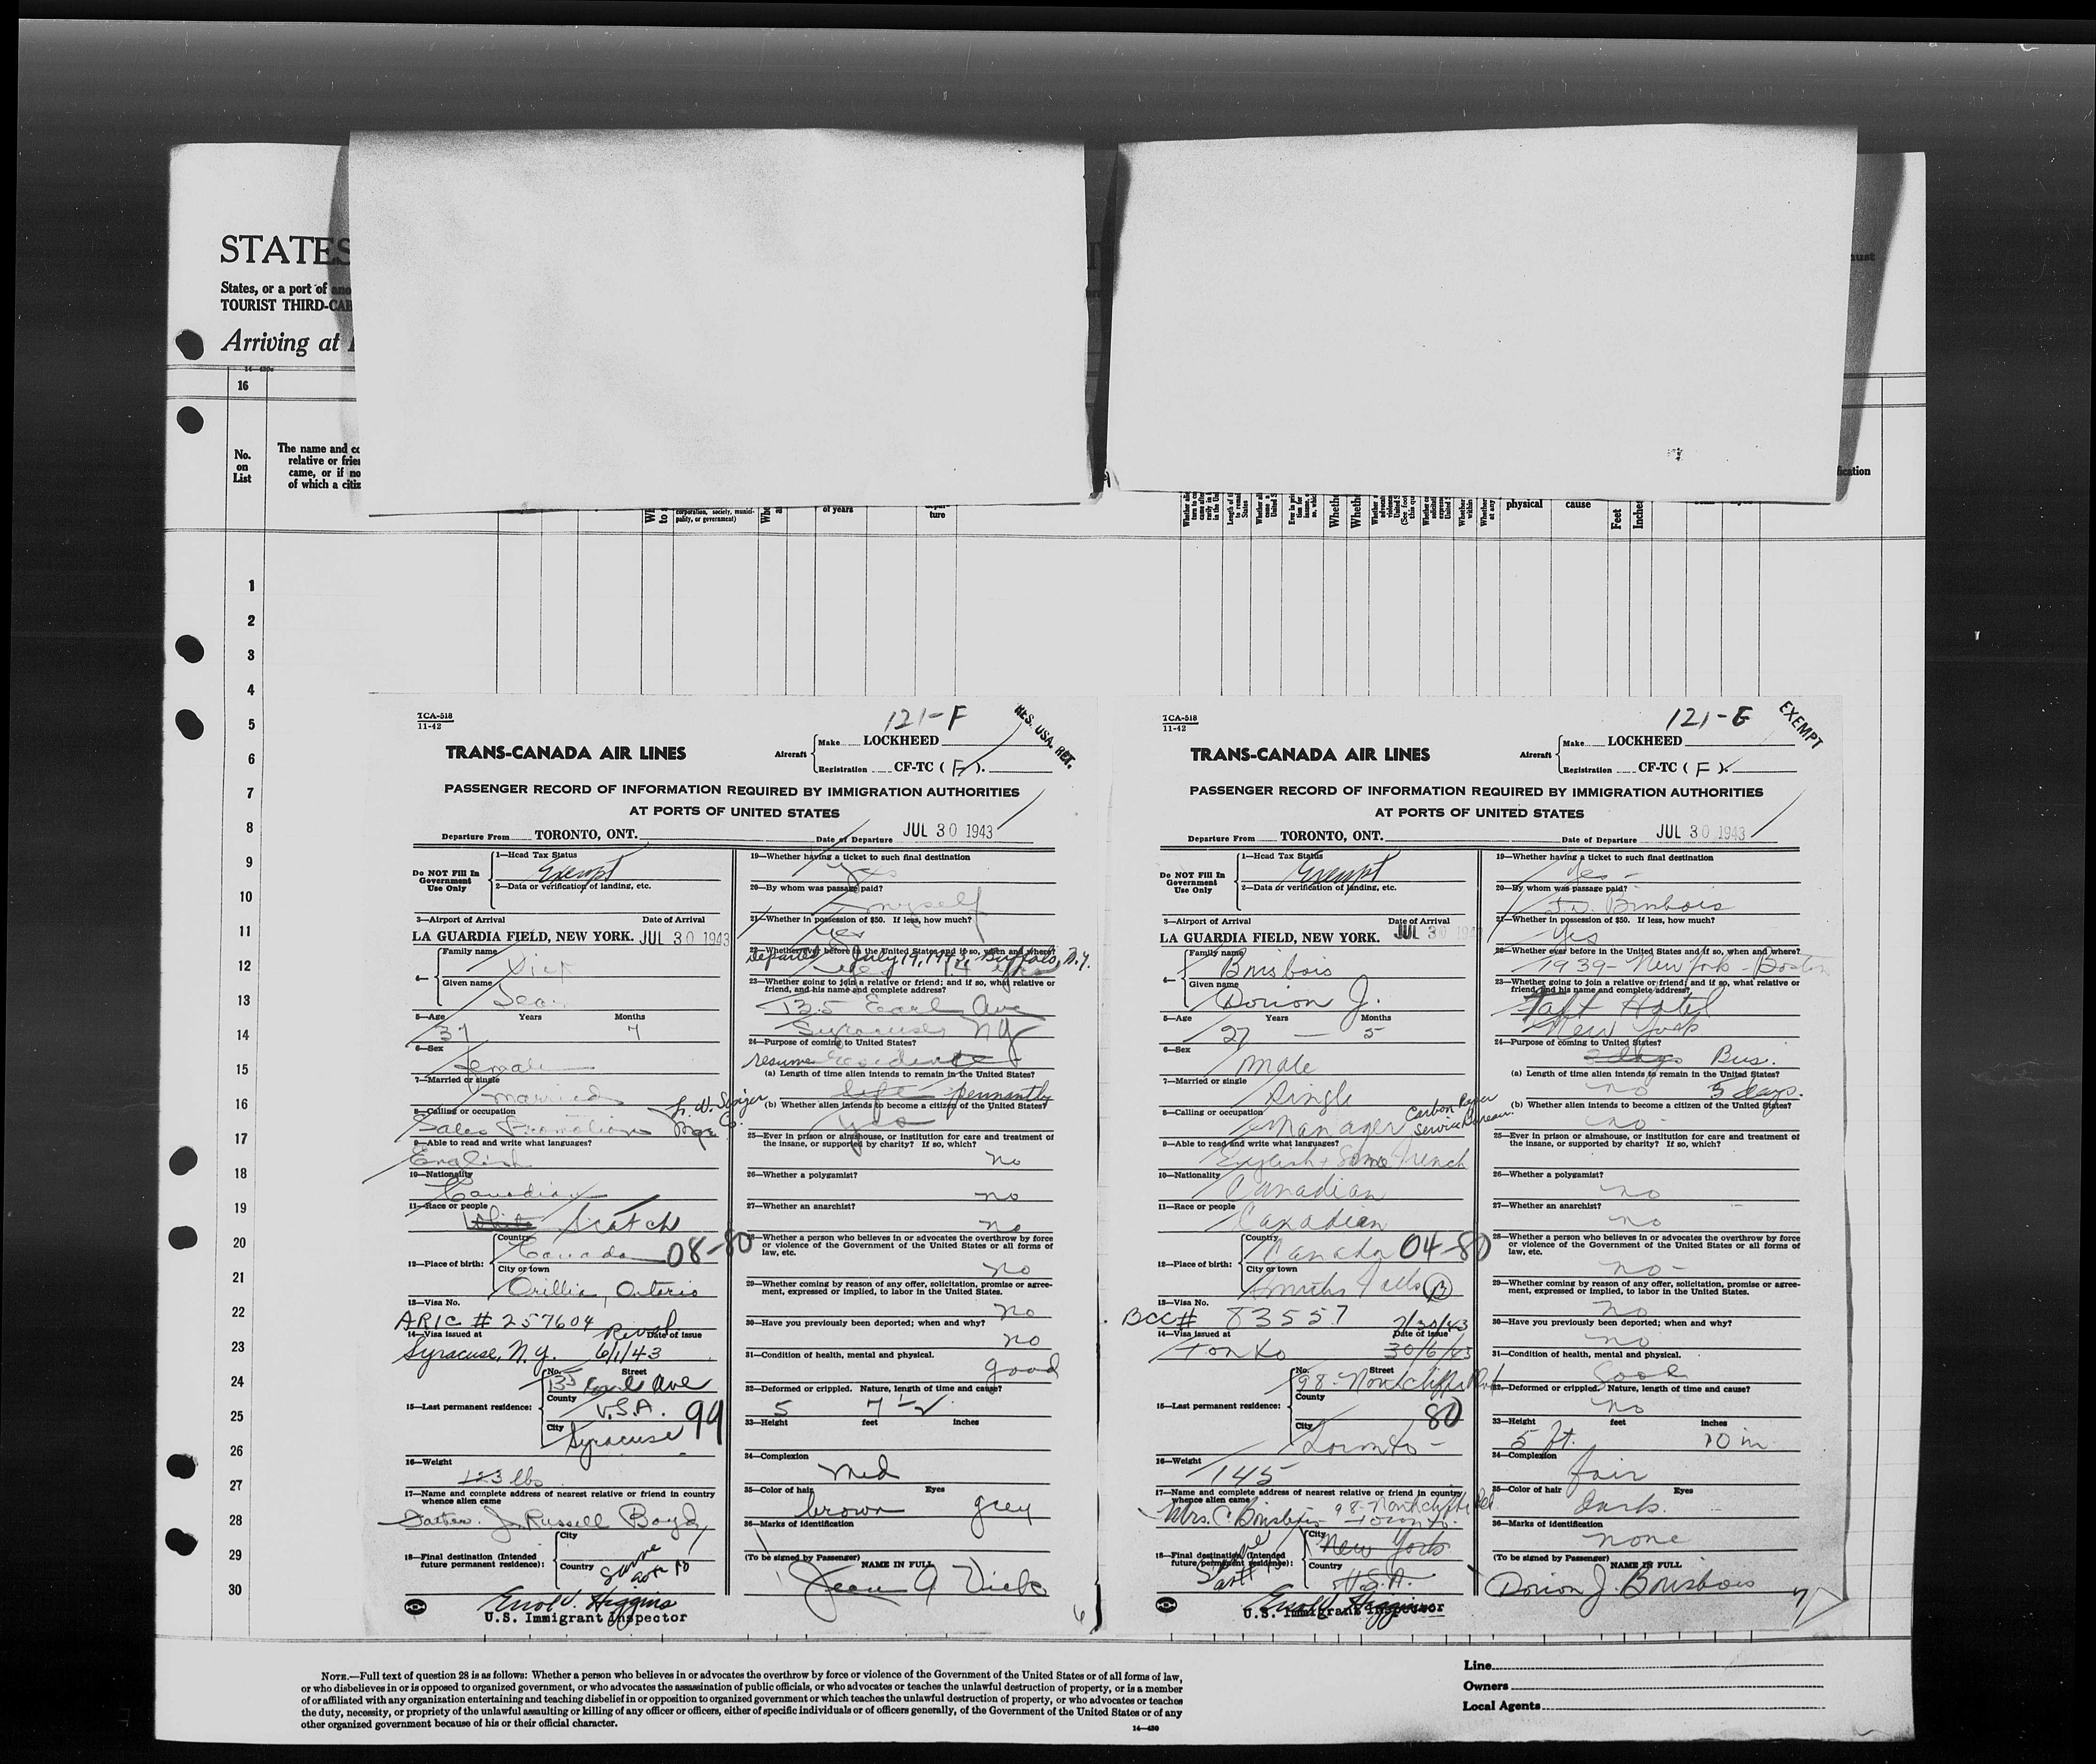 STATES
States, or a port of ano
TOURIST THIRD-CAB
Arriving at
16
No. on List
The name and co
relative or frie
came, or if no
of which a citiz
corporation, society, munici-
pality, or government)
of years
ture
physical
cause
Feet
Inche
fication
1
2
3
4
5
6
7
8
9
10
11
12
13
14
15
16
17
18
19
20
21
22
23
24
25
26
27
28
29
30
TCA-518
11-42
121-F
RES. USA. RET.
TRANS-CANADA AIR LINES
Aircraft
Make LOCKHEED
Registration CF-TC ( F ).
PASSENGER RECORD OF INFORMATION REQUIRED BY IMMIGRATION AUTHORITIES
AT PORTS OF UNITED STATES
Departure From TORONTO, ONT. Date of Departure JUL 30 1943
Do NOT Fill In Government Use Only
1—Head Tax Status
Exempt
2—Data or verification of landing, etc.
3—Airport of Arrival Date of Arrival
LA GUARDIA FIELD, NEW YORK. JUL 30 1943
4—
Family name
Vick
Given name
Jean
5—Age Years Months
37 7
6—Sex
female
7—Married or single
married
8—Calling or occupation
Sales Promotion Mgr
9—Able to read and write what languages?
English
10—Nationality
Canadian
11—Race or people
White Scotch
12—Place of birth:
Country
Canada 08-80
City or town
Orillia, Ontario
13—Visa No.
ARIC # 257604
14—Visa issued at Date of issue
Syracuse, N.Y. 6/1/43
15—Last permanent residence:
No. Street
135 Earl Ave
County
U.S.A. 99
City
Syracuse
16—Weight
123 lbs
17—Name and complete address of nearest relative or friend in country
whence alien came
Father. J. Russell Boyd
18—Final destination (Intended
future permanent residence):
City
Country
Same as # 15
Errol V. Higgins
U.S. Immigrant Inspector
19—Whether having a ticket to such final destination
yes
20—By whom was passage paid?
myself
21—Whether in possession of $50. If less, how much?
yes
22—Whether ever before in the United States and if so, when and where?
departed July 19, 1943 Buffalo, N.Y.
yes 14 yrs
23—Whether going to join a relative or friend; and if so, what relative or
friend, and his name and complete address?
135 Earl Ave
Syracuse, NY
24—Purpose of coming to United States?
resume residence
(a) Length of time alien intends to remain in the United States?
permantly
(b) Whether alien intends to become a citizen of the United States?
yes
25—Ever in prison or almshouse, or institution for care and treatment of
the insane, or supported by charity? If so, which?
no
26—Whether a polygamist?
no
27—Whether an anarchist?
no
28—Whether a person who believes in or advocates the overthrow by force
or violence of the Government of the United States or all forms of
law, etc.
no
29—Whether coming by reason of any offer, solicitation, promise or agree-
ment, expressed or implied, to labor in the United States.
no
30—Have you previously been deported; when and why?
no
31—Condition of health, mental and physical.
good
32—Deformed or crippled. Nature, length of time and cause?
5 7 1/2
33—Height feet inches
34—Complexion
Med
35—Color of hair Eyes
brown grey
36—Marks of identification
(To be signed by Passenger) NAME IN FULL
Jean A Vick
6
TCA-518
11-42
121-G
EXEMPT
TRANS-CANADA AIR LINES
Aircraft
Make LOCKHEED
Registration CF-TC ( F ).
PASSENGER RECORD OF INFORMATION REQUIRED BY IMMIGRATION AUTHORITIES
AT PORTS OF UNITED STATES
Departure From TORONTO, ONT. Date of Departure JUL 30 1943
Do NOT Fill In Government Use Only
1—Head Tax Status
Exempt
2—Data or verification of landing, etc.
3—Airport of Arrival Date of Arrival
LA GUARDIA FIELD, NEW YORK. JUL 30 194
4—
Family name
Brisbois
Given name
Dorion J.
5—Age Years Months
27 — 5
6—Sex
Male
7—Married or single
Single
8—Calling or occupation
Manager Carbon Paper Service Bureau
9—Able to read and write what languages?
English + Some French
10—Nationality
Canadian
11—Race or people
Canadian
12—Place of birth:
Country
Canada 04-80
City or town
Smiths Falls
13—Visa No.
BCC# 83557 7/30/43
14—Visa issued at Date of issue
Tonto 30/6/43
15—Last permanent residence:
No. Street
98-
County
80
City
Toronto -
16—Weight
145
17—Name and complete address of nearest relative or friend in country
whence alien came
Mrs. C. Brisbois
18—Final destination (Intended
future permanent residence):
City
New York
Country
U.S.A.
Same as # 15
Errol V. Higgins
U.S. Immigrant Inspector
19—Whether having a ticket to such final destination
yes -
20—By whom was passage paid?
Brisbois
21—Whether in possession of $50. If less, how much?
yes
22—Whether ever before in the United States and if so, when and where?
1939 - New York - Boston
23—Whether going to join a relative or friend; and if so, what relative or
friend, and his name and complete address?
Taft Hotel
New York
24—Purpose of coming to United States?
Bus.
(a) Length of time alien intends to remain in the United States?
no 3 days.
(b) Whether alien intends to become a citizen of the United States?
no -
25—Ever in prison or almshouse, or institution for care and treatment of
the insane, or supported by charity? If so, which?
26—Whether a polygamist?
no
27—Whether an anarchist?
no
28—Whether a person who believes in or advocates the overthrow by force
or violence of the Government of the United States or all forms of
law, etc.
no -
29—Whether coming by reason of any offer, solicitation, promise or agree-
ment, expressed or implied, to labor in the United States.
no
30—Have you previously been deported; when and why?
no
31—Condition of health, mental and physical.
Good
32—Deformed or crippled. Nature, length of time and cause?
no
33—Height feet inches
5 ft. 10 in
34—Complexion
fair
35—Color of hair Eyes
dark.
36—Marks of identification
none
(To be signed by Passenger) NAME IN FULL
Dorion J. Brisbois
7
NOTE.—Full text of question 28 is as follows: Whether a person who believes in or advocates the overthrow by force or violence of the Government of the United States or of all forms of law,
or who disbelieves in or is opposed to organized government, or who advocates the assassination of public officials, or who advocates or teaches the unlawful destruction of property, or is a member
of or affiliated with any organization entertaining and teaching disbelief in or opposition to organized government or which teaches the unlawful destruction of property, or who advocates or teaches
the duty, necessity, or propriety of the unlawful assaulting or killing of any officer or officers, either of specific individuals or of officers generally, of the Government of the United States or of any
other organized government because of his or their official character.
14—430
Line
Owners
Local Agents